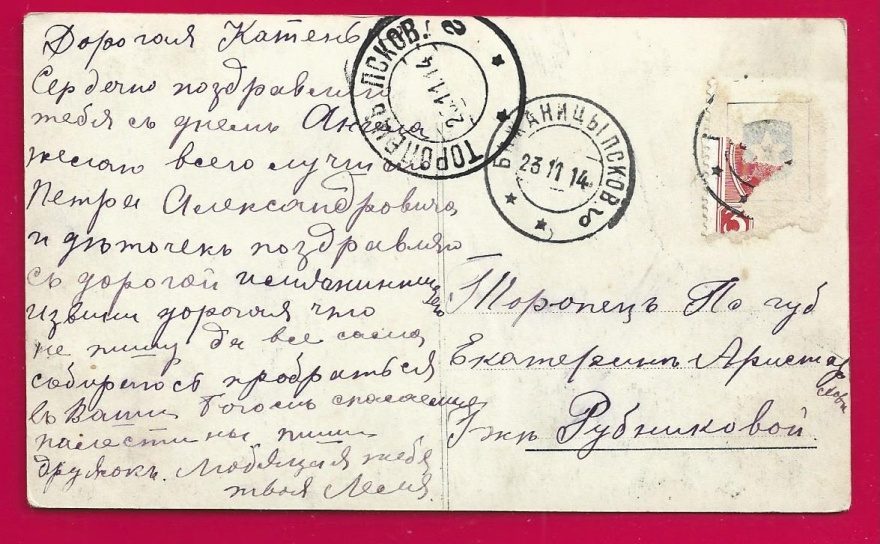 Дорогая Катень
Сердечно поздравляю
тебя съ днемъ Ангела
желаю всего лучш
Петра Александровича
и дѣточекъ поздравляю
съ дорогой имянинницей
извини дорогая что
не пишу да все сама
собираюсь пробраться
въ Ваши Богомъ спасаемые
палестины пиши
дружокъ. Любящая тебя
твоя Леля
ТОРОПЕЦЪ ПСКОВ. 2
11.14
БОЛКАНИЦЫ ПСКОВ. 
23 11 14
3
Торопецъ Пс губ
Екатеринѣ Аристар
ховнѣ
Гжѣ Рубниковой.